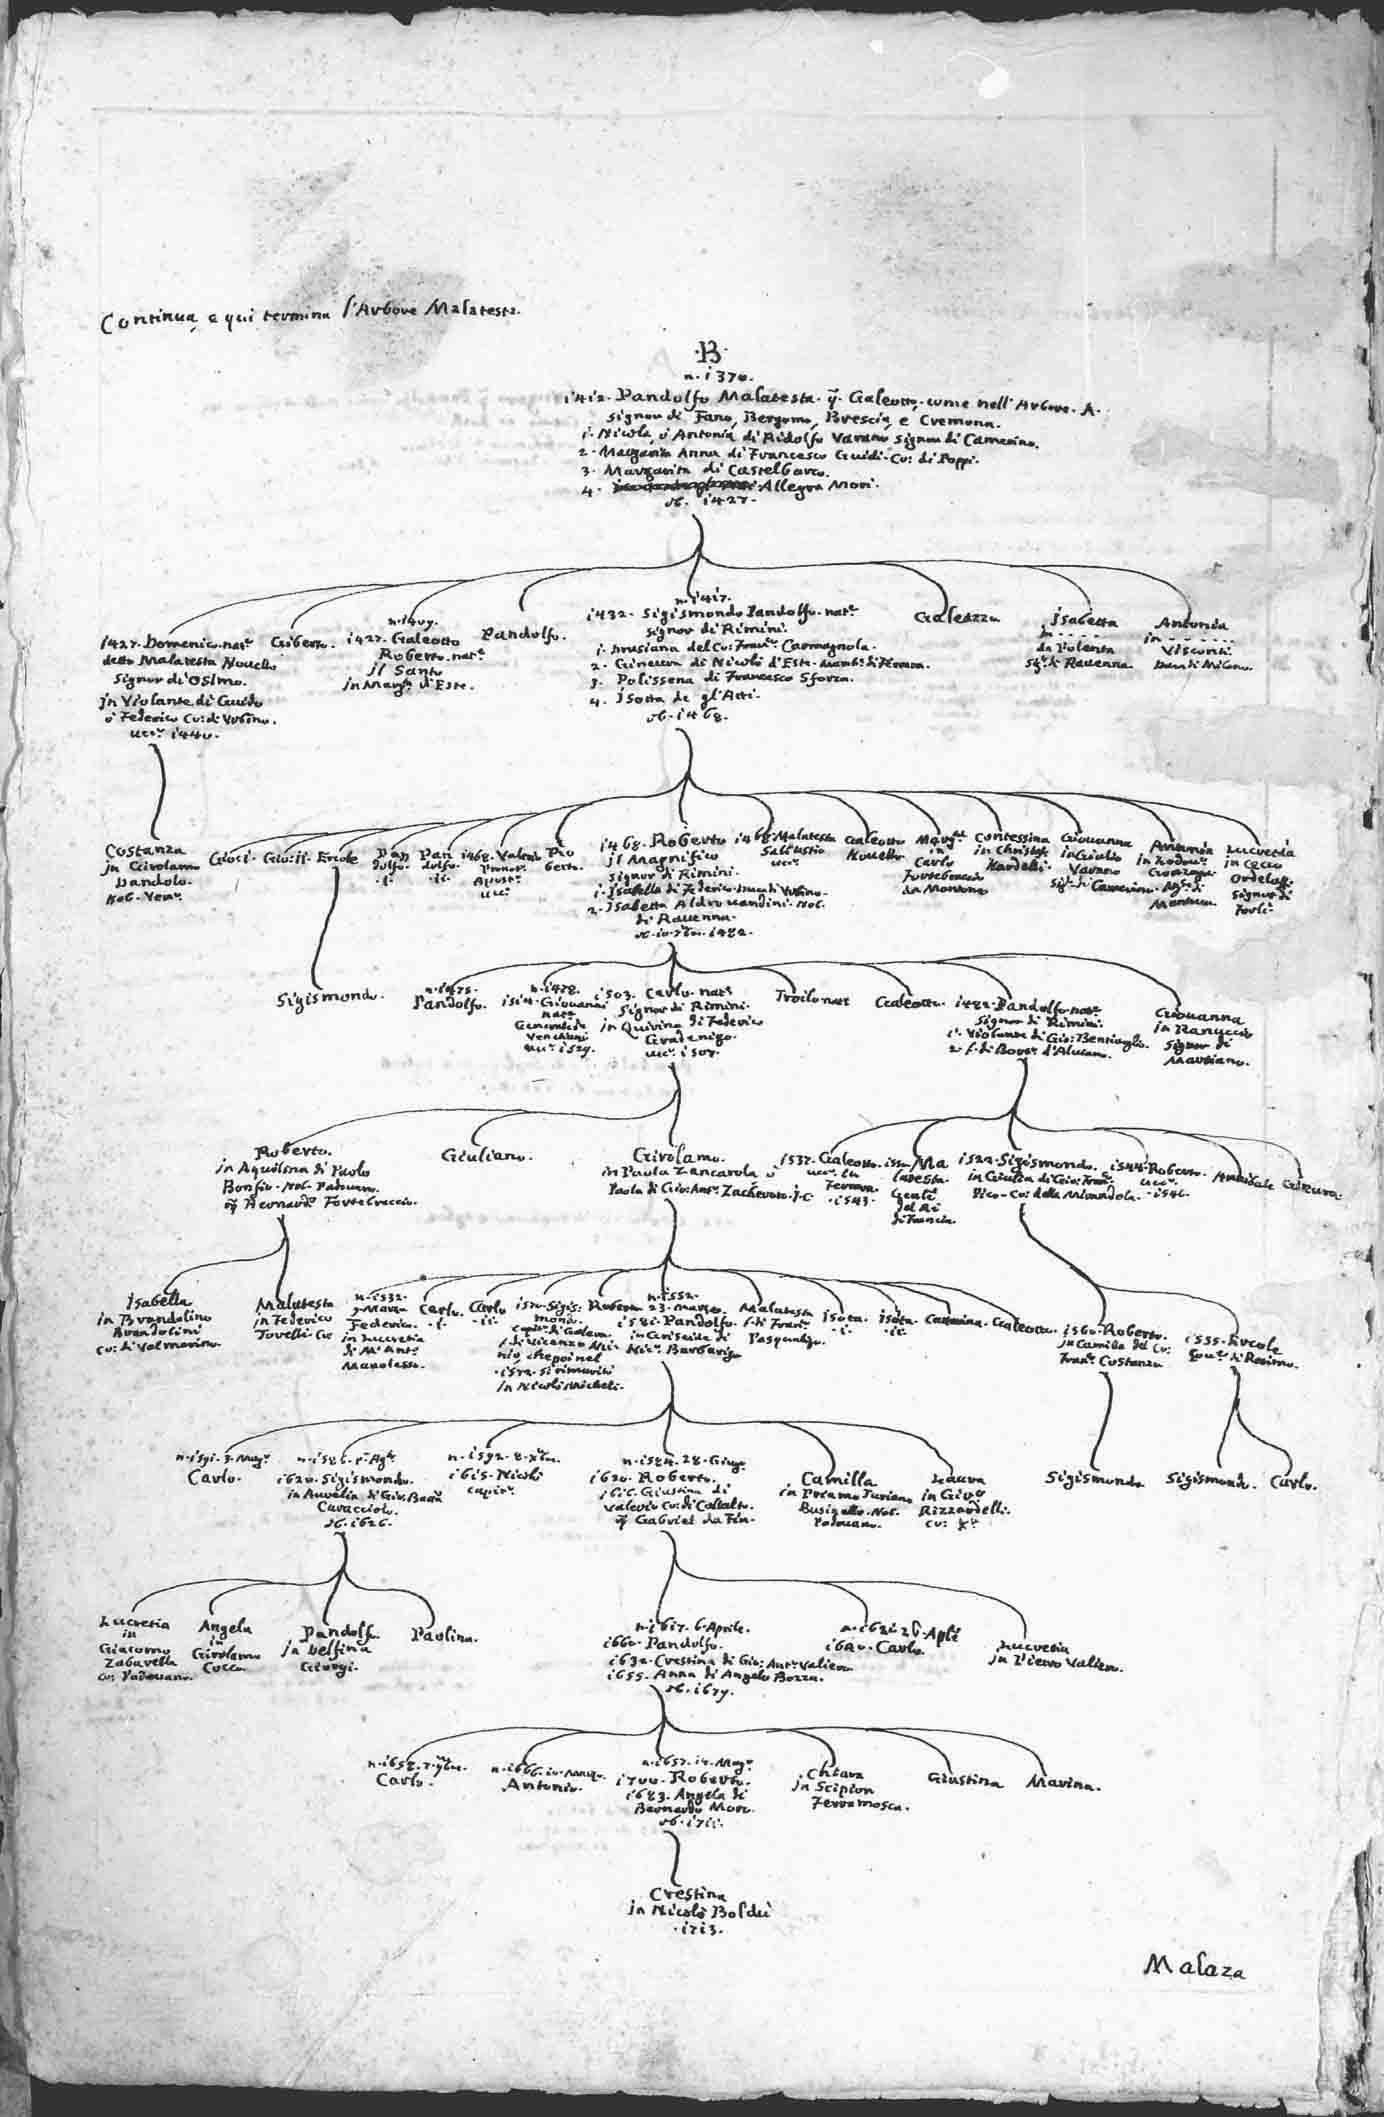 Continua, e qui termina l'Arbore Malatesta.
·B·
n. i370.
i4i2. Pandolfo Malatesta. q. Galeotto, come nell' Arbore. A.
signor di Fano, Bergomo, Brescia, e Cremona.
i. Nicola, ò Antonia di Ridolfo Varano signor di Camerino.
2. Margarita Anna di Francesco Guidi. Co: di Poppi.
3. Margarita di Castelbarco.
4. Allegra Mori.
ob. i427.
i427. Domenico. nat.e
detto Malatesta Novello
signor di Osimo.
jn Violante di Guido
ò Federico Co: di Urbino.
i440.
Giberto.
n. i409.
i427. Galeotto
Roberto. nat.e
jl Santo
jn Marg.ta d'Este.
Pandolfo.
n. i4i7.
i432. Sigismondo Pandolfo. nat.e
signor di Rimini.
i. del Co: Fran.co Carmagnola.
2. Ginevra di Nicolò d'Este. March: di Ferrara.
3. Polissena di Francesco Sforza.
4. jsotta de gl'Atti.
ob. i468.
Galeazzo
jsabetta
in . . . . .
da Polenta
sig.r di Ravenna.
Antonia
in . . . . . .
Visconti.
Duca di Milano.
Costanza
jn Girolamo
Dandolo.
Nob. Ven.o
Gio: i.
Gio: ii.
Ercole
Pan
dolfo.
.i.
Pan
dolfo.
.ii.
i468. Valerio
Apost.o
Ro
berto.
i468. Roberto
jl Magnifico
signor di Rimini.
i. jsabella di Federico Duca di Urbino.
2. Isabetta Aldrovandini. Nob.
di Ravenna.
ob. i0. 7bre. i482.
i468. Malatesta
Sallustio
Galeotto
Novello
Marg.ta
in
Carlo
Fortebraccio
da Montone
Contessina
in Christof.
Nardelli.
Giovanna
in Giulio
Varano
Sig.r di Camerino.
Antonia
in Rodon.
Gonzaga
di
Mantova.
Lucretia
in Cecco
Ordelaffi
signor di
Forlì.
Sigismondo.
n. i475.
Pandolfo.
n. i478.
i5i4. Giovanni
nat.e
Generale de
Venetiani
i529.
i503. Carlo. nat.e
Signor di Rimini.
in Quirina di Federico
Gradenigo.
i508.
Troilo nat.e
Galeotto.
i482. Pandolfo. nat.e
signor di Rimini.
i. Violante di Gio: Bentivoglio.
2. f. di d'Alviano.
Giovanna
in Ranuccio
signor di
Marsiano.
Roberto.
in Aquilina di Paolo
Bonfio. Nob. Padovano.
q. Bernard.o Fortebraccio.
Giuliano.
Girolamo.
in Paula Zancarola ò
Paola di Gio: Ant.o Zacheroto. J.C.
i537. Galeotto.
in
Ferrara
.i543.
Ma
latesta.
Gent.e
del Rè
di Francia.
i522. Sigismondo.
in Giulia di Gio: Fran.
Pico. Co: della Mirandola.
i544. Roberto.
.i546.
Annibale
Ginevra.
Isabella
in Brandolino
Brandolini
Co: di Valmarino.
Malatesta
in Federico
Tovelli. Co:
n. i532.
Federico.
in Lucretia
di M. Ant.o
Manolesso.
Carlo.
.i.
Carlo
.ii.
Sigis:
mondo.
Cap.o di Galera
Roberto
n. i552.
23. Marzo.
i58i. Pandolfo.
in Criseide di
Nic.o Barbarigo
Malatesta
f. di Fran.
Pasqualigo.
Isota.
.i.
Isota
.ii.
Catterina.
Galeotto.
i560. Roberto.
jn Camilla del Co:
Fran.o Costanzo
i555. Ercole
Gov.r di Rosimo.
n. i59i. 3. Mag.o
Carlo.
n. i586. p.o Ag.to
i620. Sigismondo.
in Aurelia di Gio: Batta
Caracciolo.
ob. i626.
n. i592. 8. Xbre.
i6i5. Nicolò
n. i584. 28. Giugo
i620. Roberto.
i6i6. Giustina di
Valerio Co: di Collalto.
q. Gabriel da Fin.
Camilla
in Priamo Turiano
Businello. Nob.
Padovano.
Laura
in Givo
Rizzardelli.
Co: K.r
Sigismondo
Sigismondo.
Carlo.
Lucretia
in
Giacomo
Zabarella
Co: Padovano.
Angela
in
Girolamo
Cocco
Pandolfo.
in Delfina
Giorgi.
Paolina.
n. i6i7. 6. Aprile.
i660. Pandolfo.
i632. Crestina di Gio: Ant.o Valiero
i655. Anna di Angelo Bozza.
ob. i679.
n. i62i. 26. Aple
i620. Carlo.
Lucretia
in Piero Valiero.
n. i658. 7. 9bre.
Carlo.
n. i666. i0. Marzo.
Antonio.
n. i657. i4. Mag.o
i700. Roberto.
i683. Angela di
Bernardo Moro.
ob. i7ii.
Chiara
in Scipion
Ferramosca.
Giustina
Marina.
Crestina
jn Nicolò Boldù
.i7i3.
Malaza